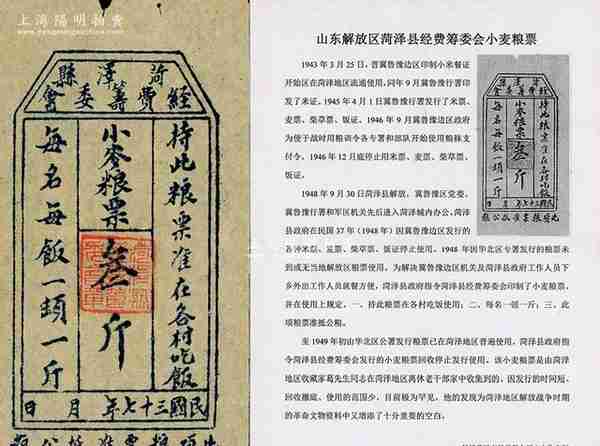 上海陽明拍賣
菏澤縣
經費籌委會
持此粮票准在各村吃飯
小麥粮票叁斤
每名每飯一頓一斤
民國三十七年 月 日
山东解放区菏泽县经费筹委会小麦粮票
1943年3月25日，晋冀鲁豫边区印制小米餐证
开始区在菏泽地区流通使用，同年9月冀鲁豫行署印
发了米证。1945年4月1日冀鲁豫行署发行了米票、
麦票、柴草票、饭证。1946年9月冀鲁豫边区政府
为便于战时用粮训令各专署和部队开始使用粮秣支
付令。1946年12月底停止用米票、麦票、柴草票、
饭证。
1948年9月30日菏泽县解放，冀鲁豫区党委、
冀鲁豫行署和军区机关先后进入菏泽城内办公。菏泽
县政府在民国37年（1948年）因冀鲁豫边区发行的
各种米票、麦票、柴草票、饭证停止使用。1948年因华北区专署发行的粮票未
到或无当地解放区粮票使用，为解决冀鲁豫边区机关及菏泽县政府工作人员下
乡外出工作人员就餐方便，菏泽县政府指令菏泽县经费筹委会印制了小麦粮票，
并在使用上规定，一、持此粮票在各村吃饭使用；二、每名一顿一斤；三、此
项粮票准抵公粮。
至1949年初由华北区公署发行粮票已在菏泽地区普遍使用，菏泽县政府指
令菏泽县经费筹委会发行的小麦粮票回收停止发行使用。该小麦粮票是由菏泽
地区收藏家葛先生同志在菏泽地区离休老干部家中收集到的，因发行的时间短，
回收撤底、使用的范围少，目前极为罕见，他的发现为菏泽地区解放战争时期
的革命文物资料中又增添了十分重要的空白。
菏澤縣
經費籌委會
持此粮票准在各村吃飯
小麥粮票叁斤
每名每飯一頓一斤
民國三十七年 月 日